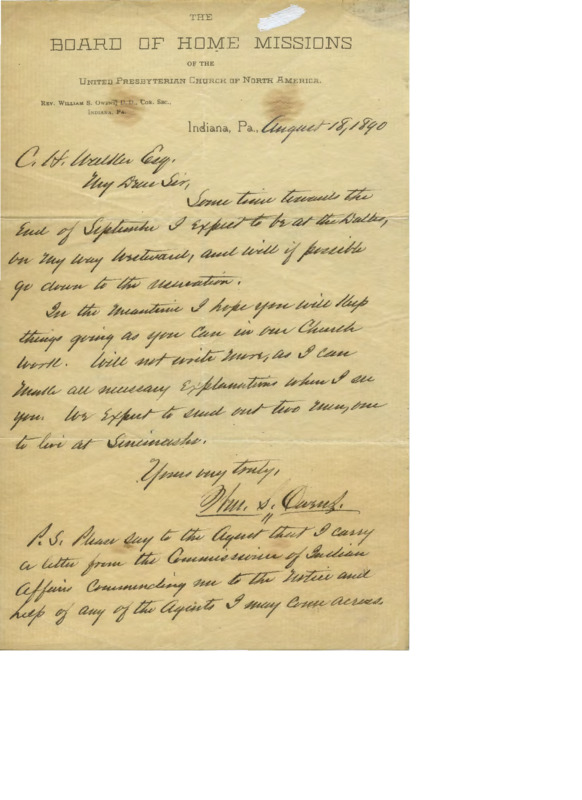 THE
BOARD OF HOME MISSIONS
OF THE
UNITED PRESBYTERIAN CHURCH OF NORTH AMERICA.
REV. WILLIAM S. OWENS, D.D., COR. SEC.,
INDIANA, PA.
Indiana, Pa., August 18, 1890
C. H. Walker Esq.
My Dear Sir,
Some time towards the
End of September I Expect to be at the Dalles,
on my way Westward, and will if possible
go down to the reservation.
In the meantime I hope you will Keep
things going as you Can in our Church
work. Will not write more, as I can
make all necessary Explanations when I see
you. We Expect to send out two men, one
to live at Sinemasho.
Yours very truly,
Wm. S. Owens.
P.S. Please say to the Agent that I carry
a letter from the Commissioner of Indian
Affairs Commending me to the notice and
help of any of the Agents I may Come across.